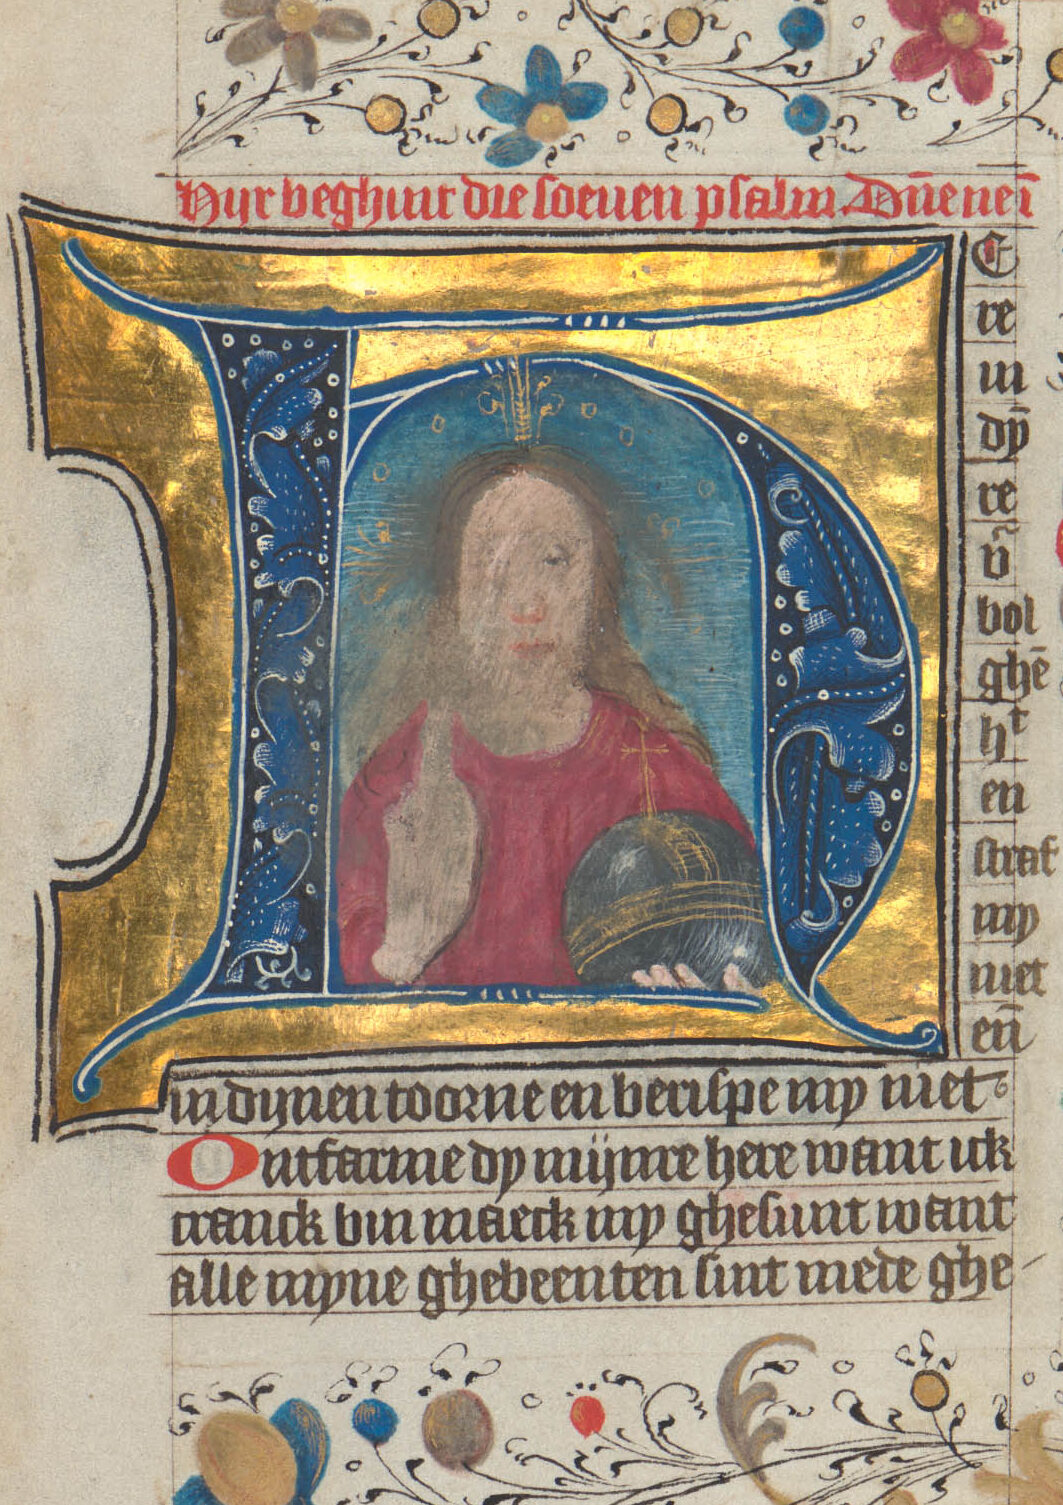 Hyr beghint die soeuen psalm. Dn̄e neī
H
E
re
in
dȳ
re
v̄
bol
ghē
hᵗ
en
straf
my
niet
en̄
in dynen toorne en berispe my niet
Ontfarme dy mijnre here want ick
cranck bin maeck my ghesunt want
alle myne ghebeenten sint mede ghe